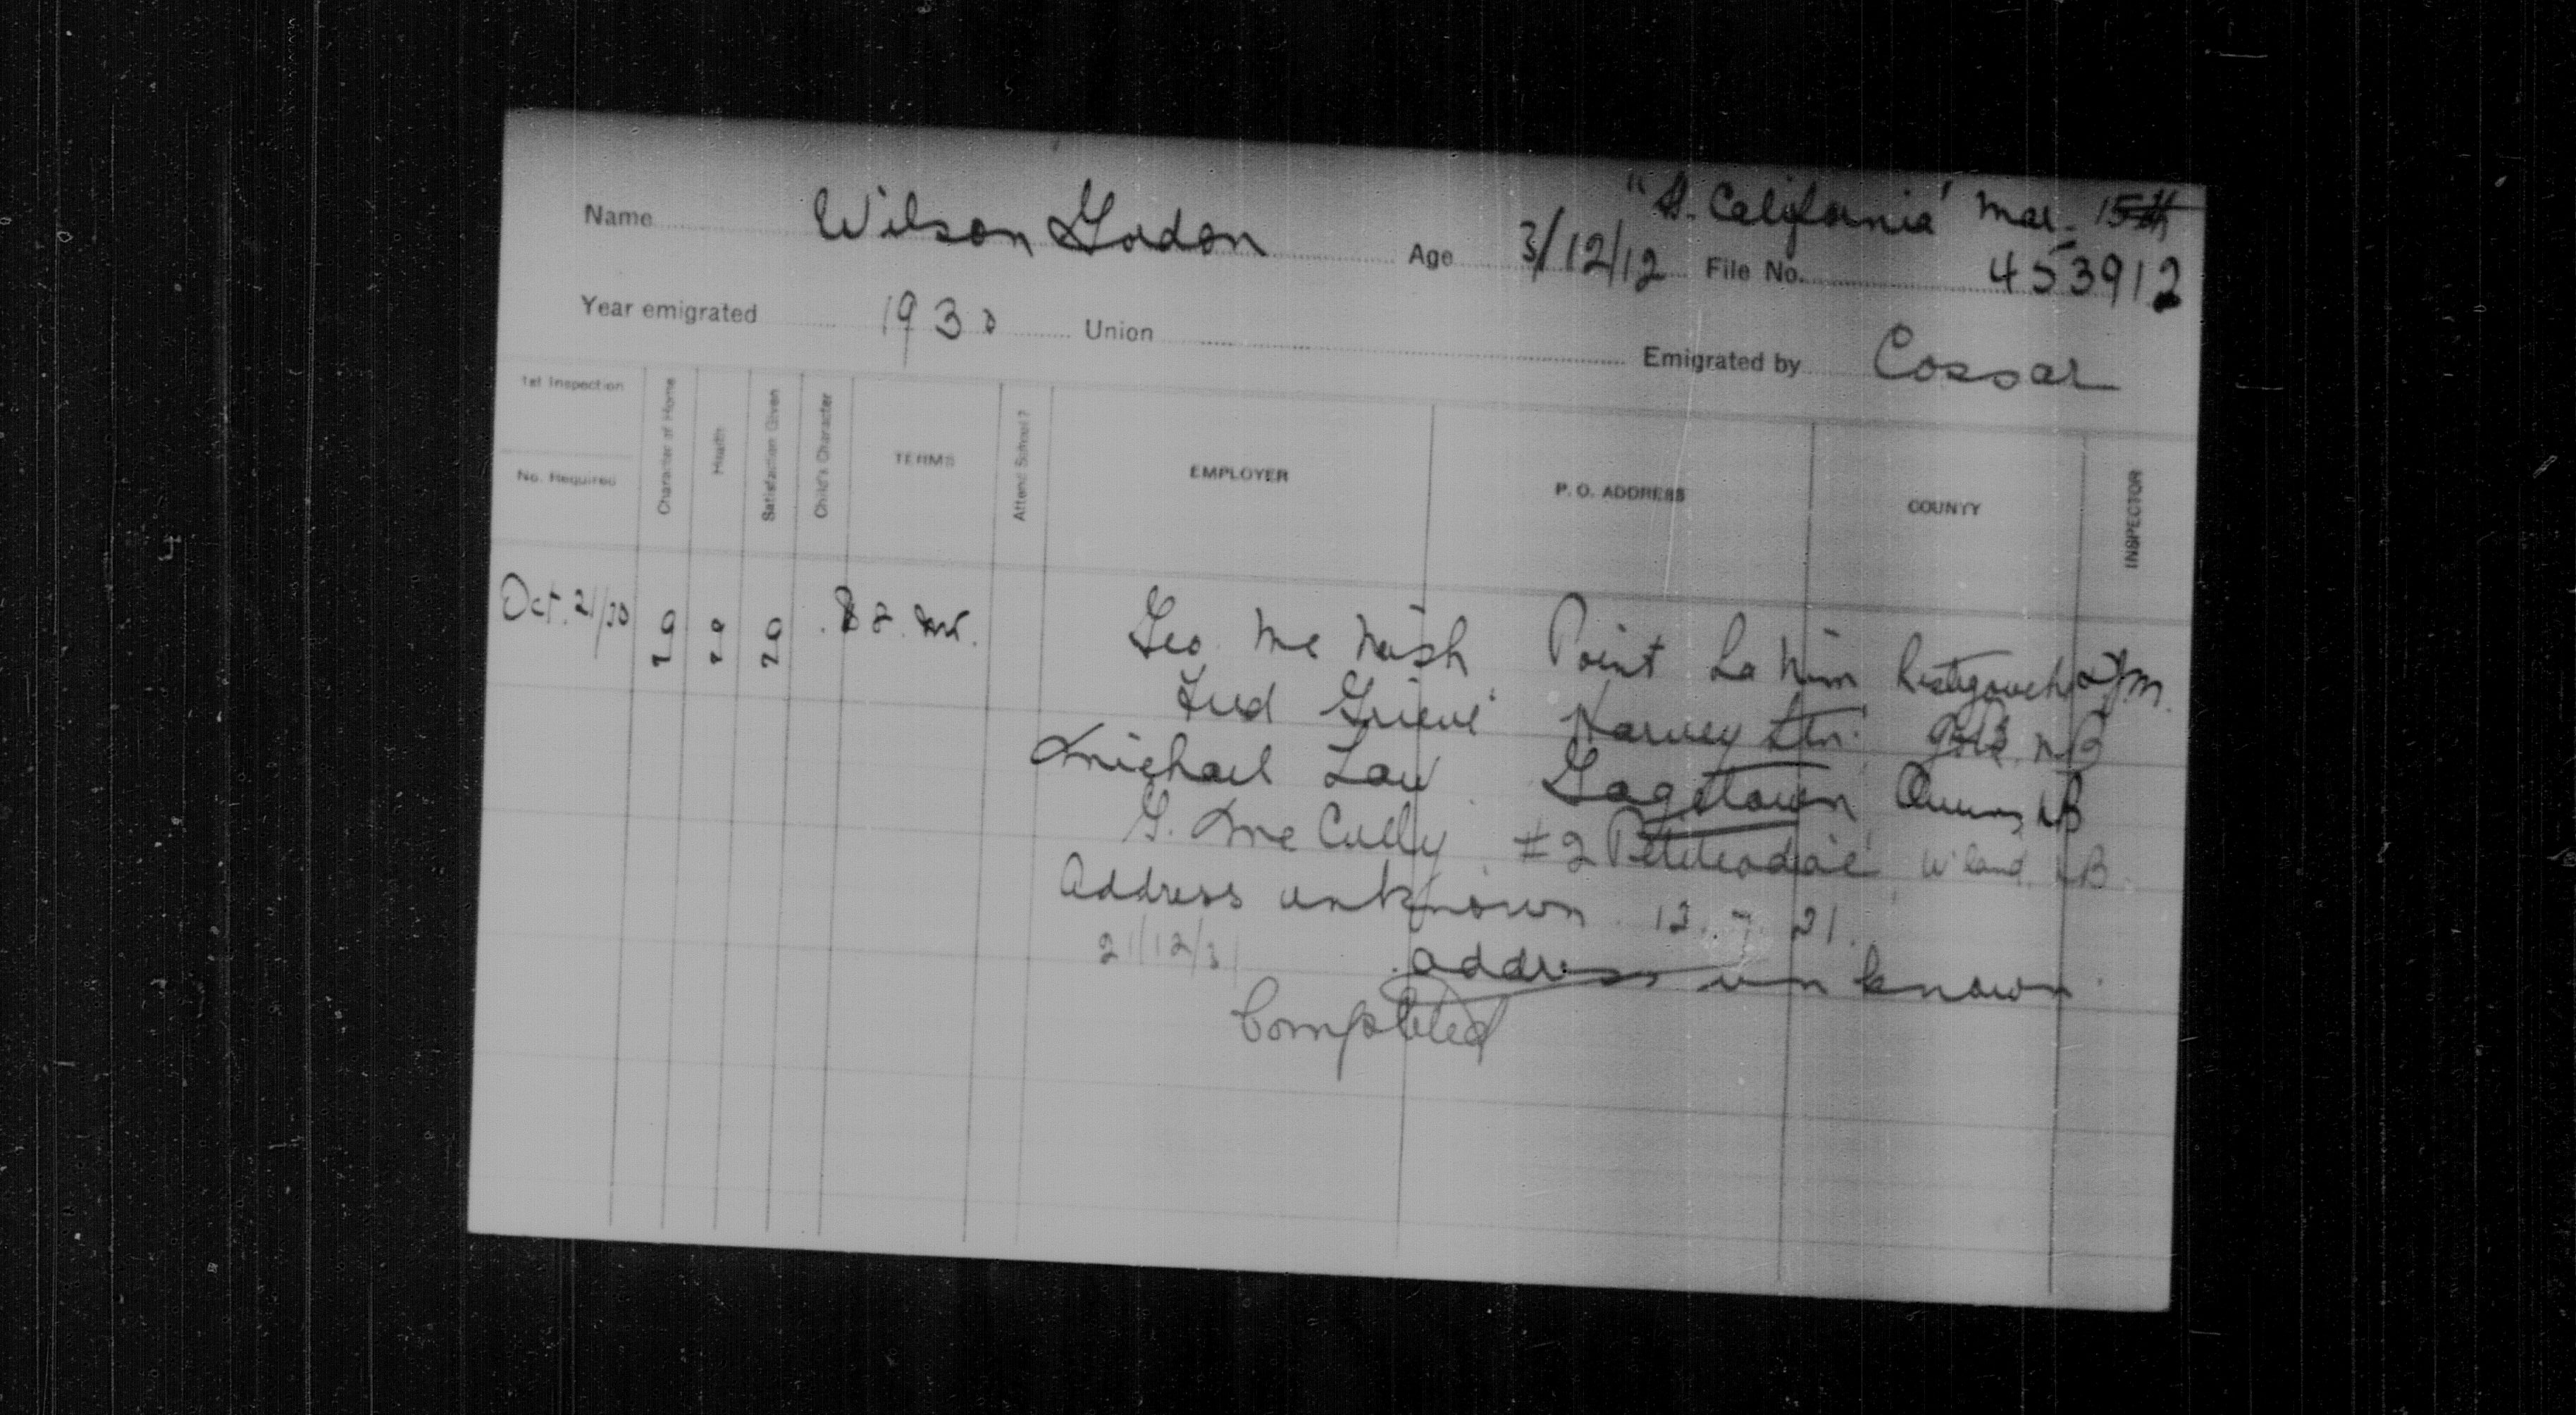 "S. California" Mar. 15th
Name Wilson Gordon Age 3/12/12 File No. 453912
Year emigrated 1930 Union Emigrated by Cossar
1st Inspection
No. Required
Character of Home
Health
Satisfaction Given
Child's Character
TERMS
Attend School?
EMPLOYER
P. O. ADDRESS
COUNTY
INSPECTOR
Oct. 21/30 Geo. McNish Point La Nim Restigouche
Fred Grieve Harvey Stn. N.B
Michael Law Gagetown Queens NB
G. McCully #2 Petitcodiac W'land NB.
Address unknown
21/12/31 address unknown
Completed